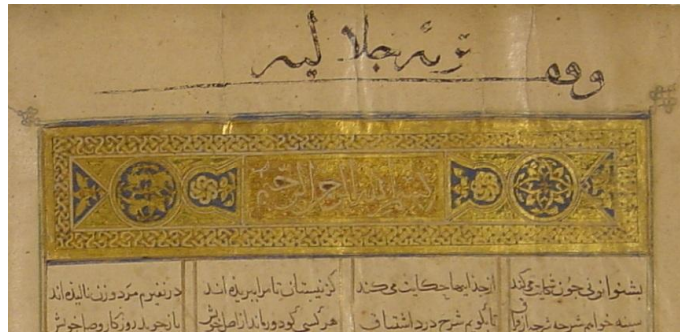 وقف تربه جلا لیه
بسم الله الرحمن الرحیم
بشنو این نی جون شکایت می کند از جذاییها حکایت می کند کز نیستان تا مرا ببریذه اند در نفیرم مرد و زن نالیذه اند
سینه خواهم شرحه شرحه از فراق تا بگویم شرح درد اشتیاق هر کسی کو دور ماند از اصل خویش باز جوید روزگار وصل خویش